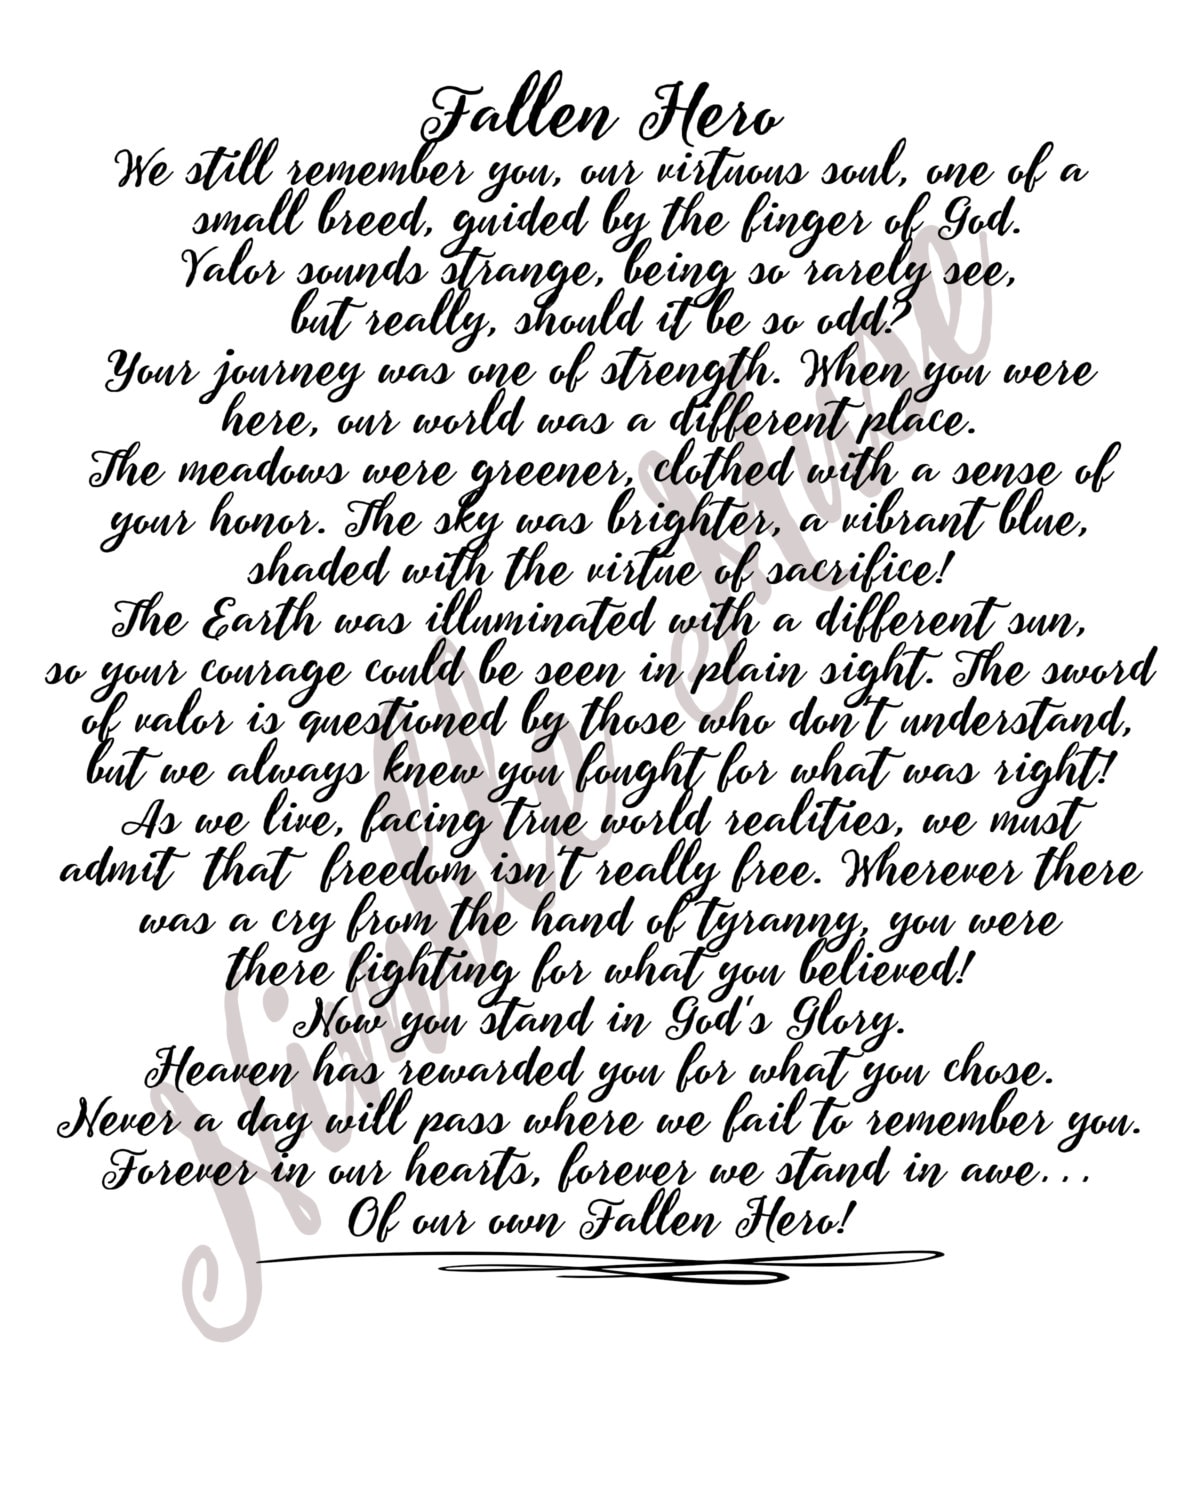 Fallen Hero
We still remember you, our virtuous soul, one of a
small breed, guided by the finger of God.
Valor sounds strange, being so rarely see,
but really, should it be so odd?
Your journey was one of strength. When you were
here, our world was a different place.
The meadows were greener, clothed with a sense of
your honor. The sky was brighter, a vibrant blue,
shaded with the virtue of sacrifice!
The Earth was illuminated with a different sun,
so your courage could be seen in plain sight. The sword
of valor is questioned by those who don't understand,
but we always knew you fought for what was right!
As we live, facing true world realities, we must
admit that freedom isn't really free. Wherever there
was a cry from the hand of tyranny, you were
there fighting for what you believed!
Now you stand in God's Glory.
Heaven has rewarded you for what you chose.
Never a day will pass where we fail to remember you.
Forever in our hearts, forever we stand in awe...
Of our own Fallen Hero!
Nimble Muse